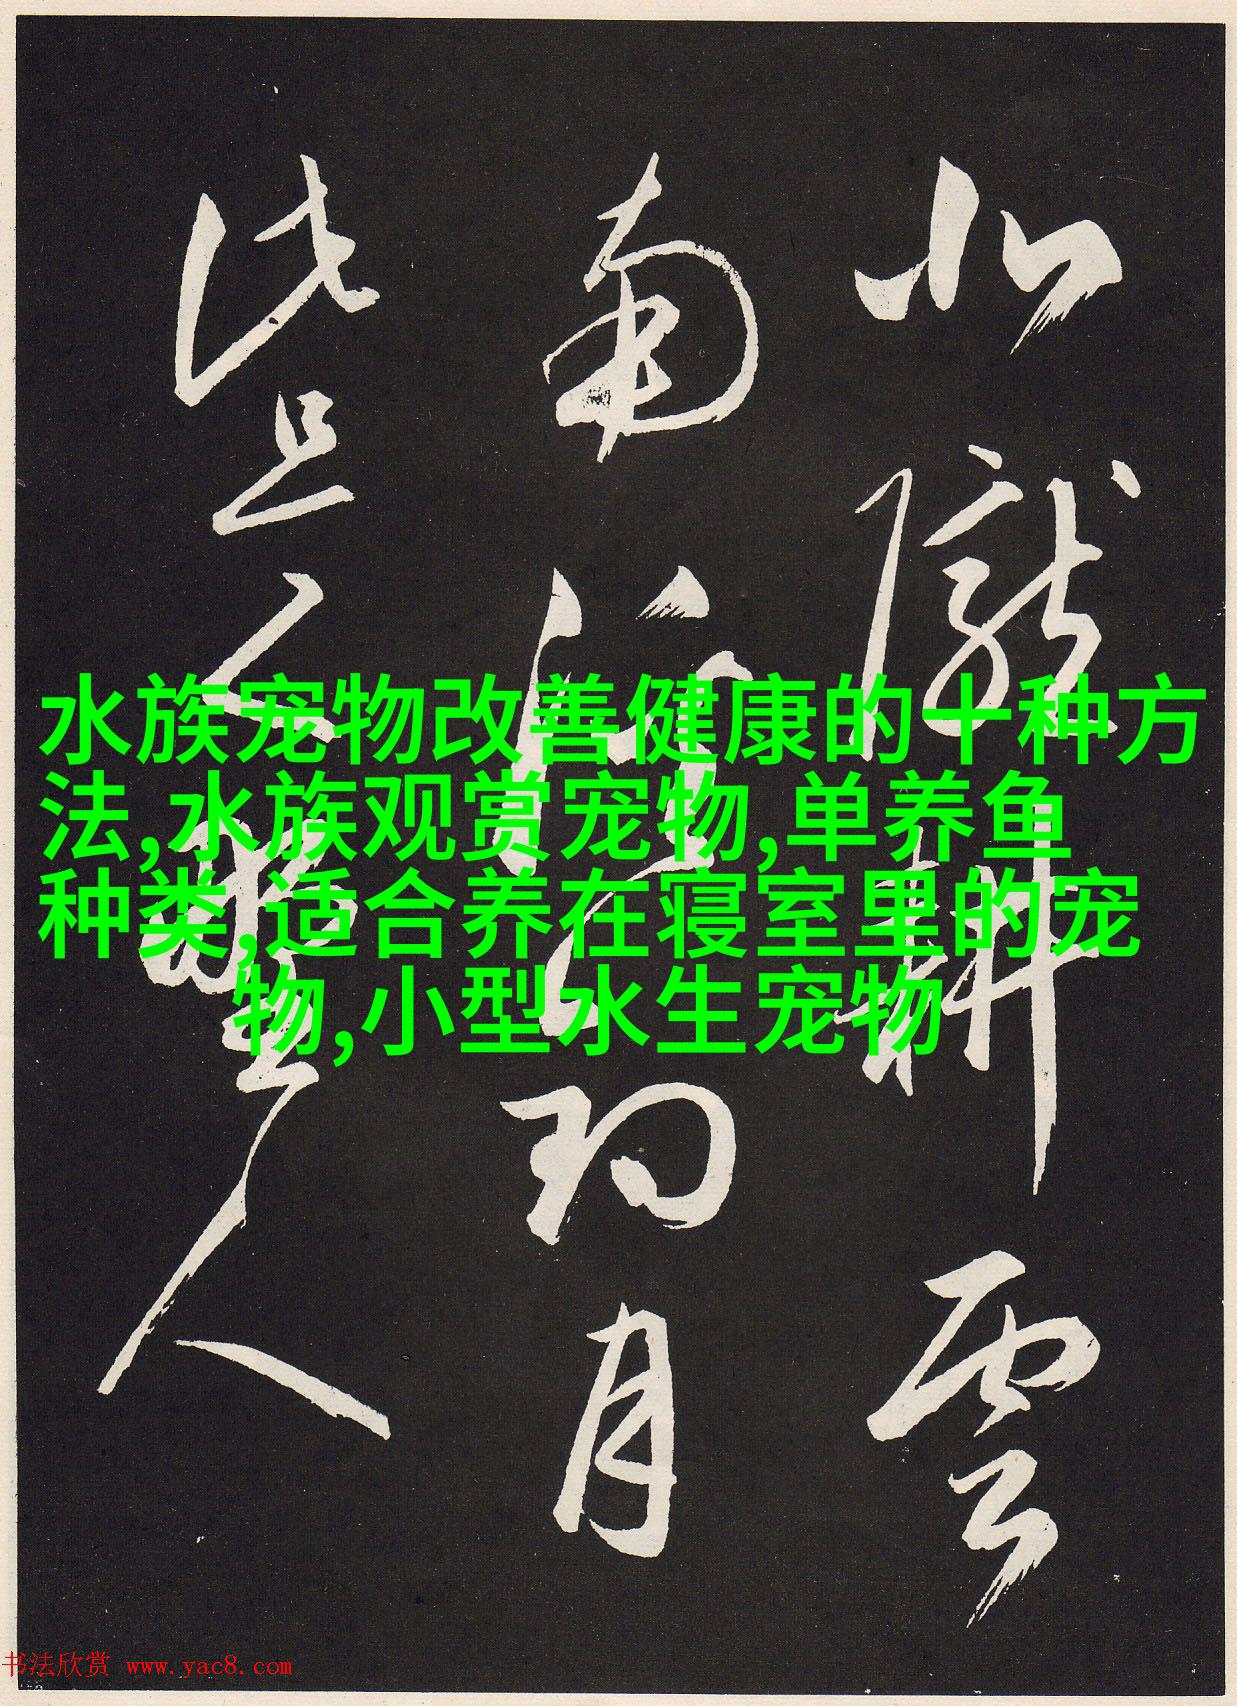 北隴耕雲
南溪釣月
此是野人
水族宠物改善健康的十种方
法,水族观赏宠物,单养鱼
种类,适合养在寝室里的宠
物,小型水生宠物
书法欣赏 www.yac8.com